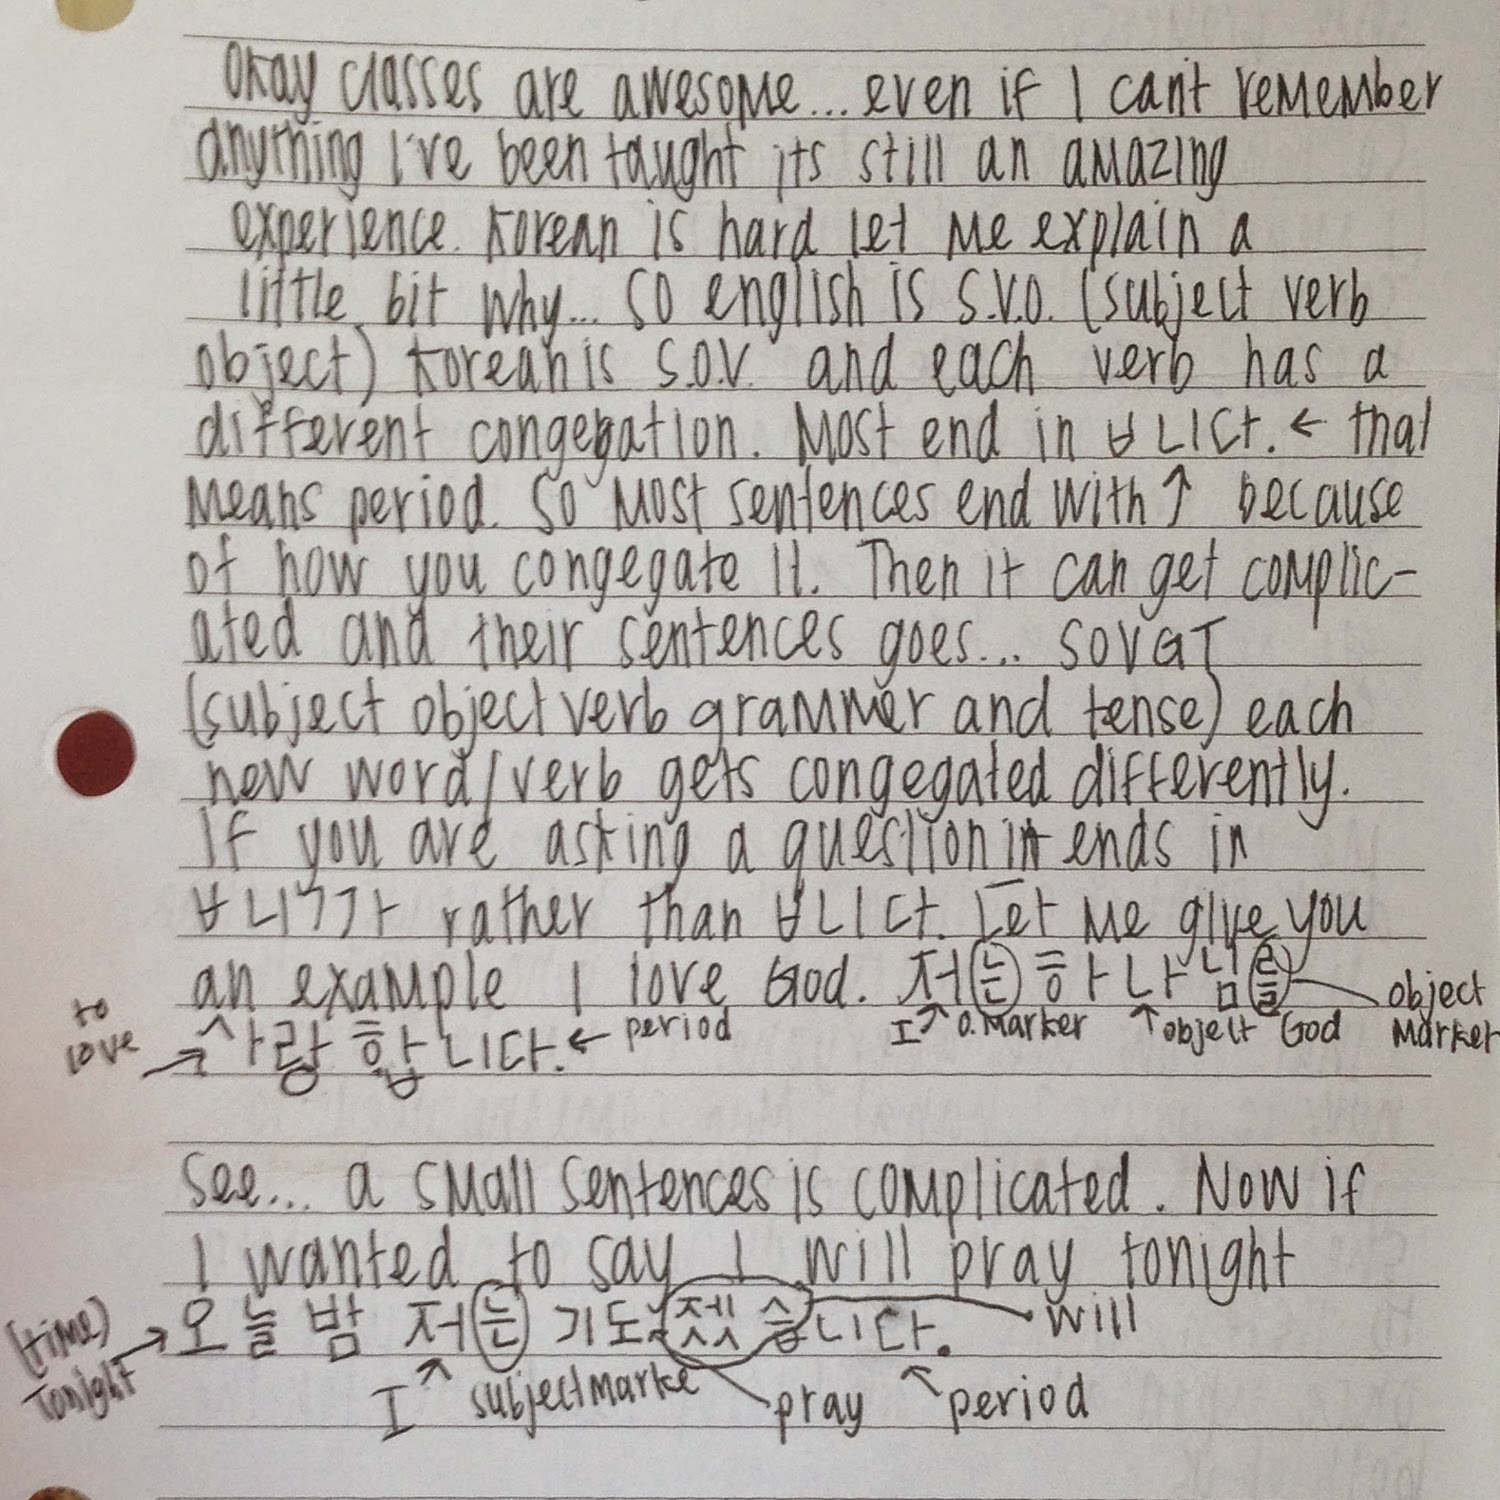 Okay classes are awesome... even if I can't remember
anything I've been taught its still an amazing
experience. Korean is hard let me explain a
little bit why... So english is S.V.O. (subject verb
object) Korean is S.O.V. and each verb has a
different congegation. Most end in ㅂ니다. ← that
means period. So most sentences end with ↑ because
of how you congegate it. Then it can get complic-
ated and their sentences goes... SOVGT
(subject object verb grammer and tense) each
new word/verb gets congegated differently.
If you are asking a question it ends in
ㅂ니ㄱ가 rather than ㅂ니다. Let me give you
an example I love God. 저는 하나님를
object marker
I O.Marker object God
to love
사랑합니다. ← period
See... a small sentences is complicated. Now if
I wanted to say I will pray tonight
(time) Tonight
오늘밤 저는 기도 젰습니다.
will
I subject marke pray period